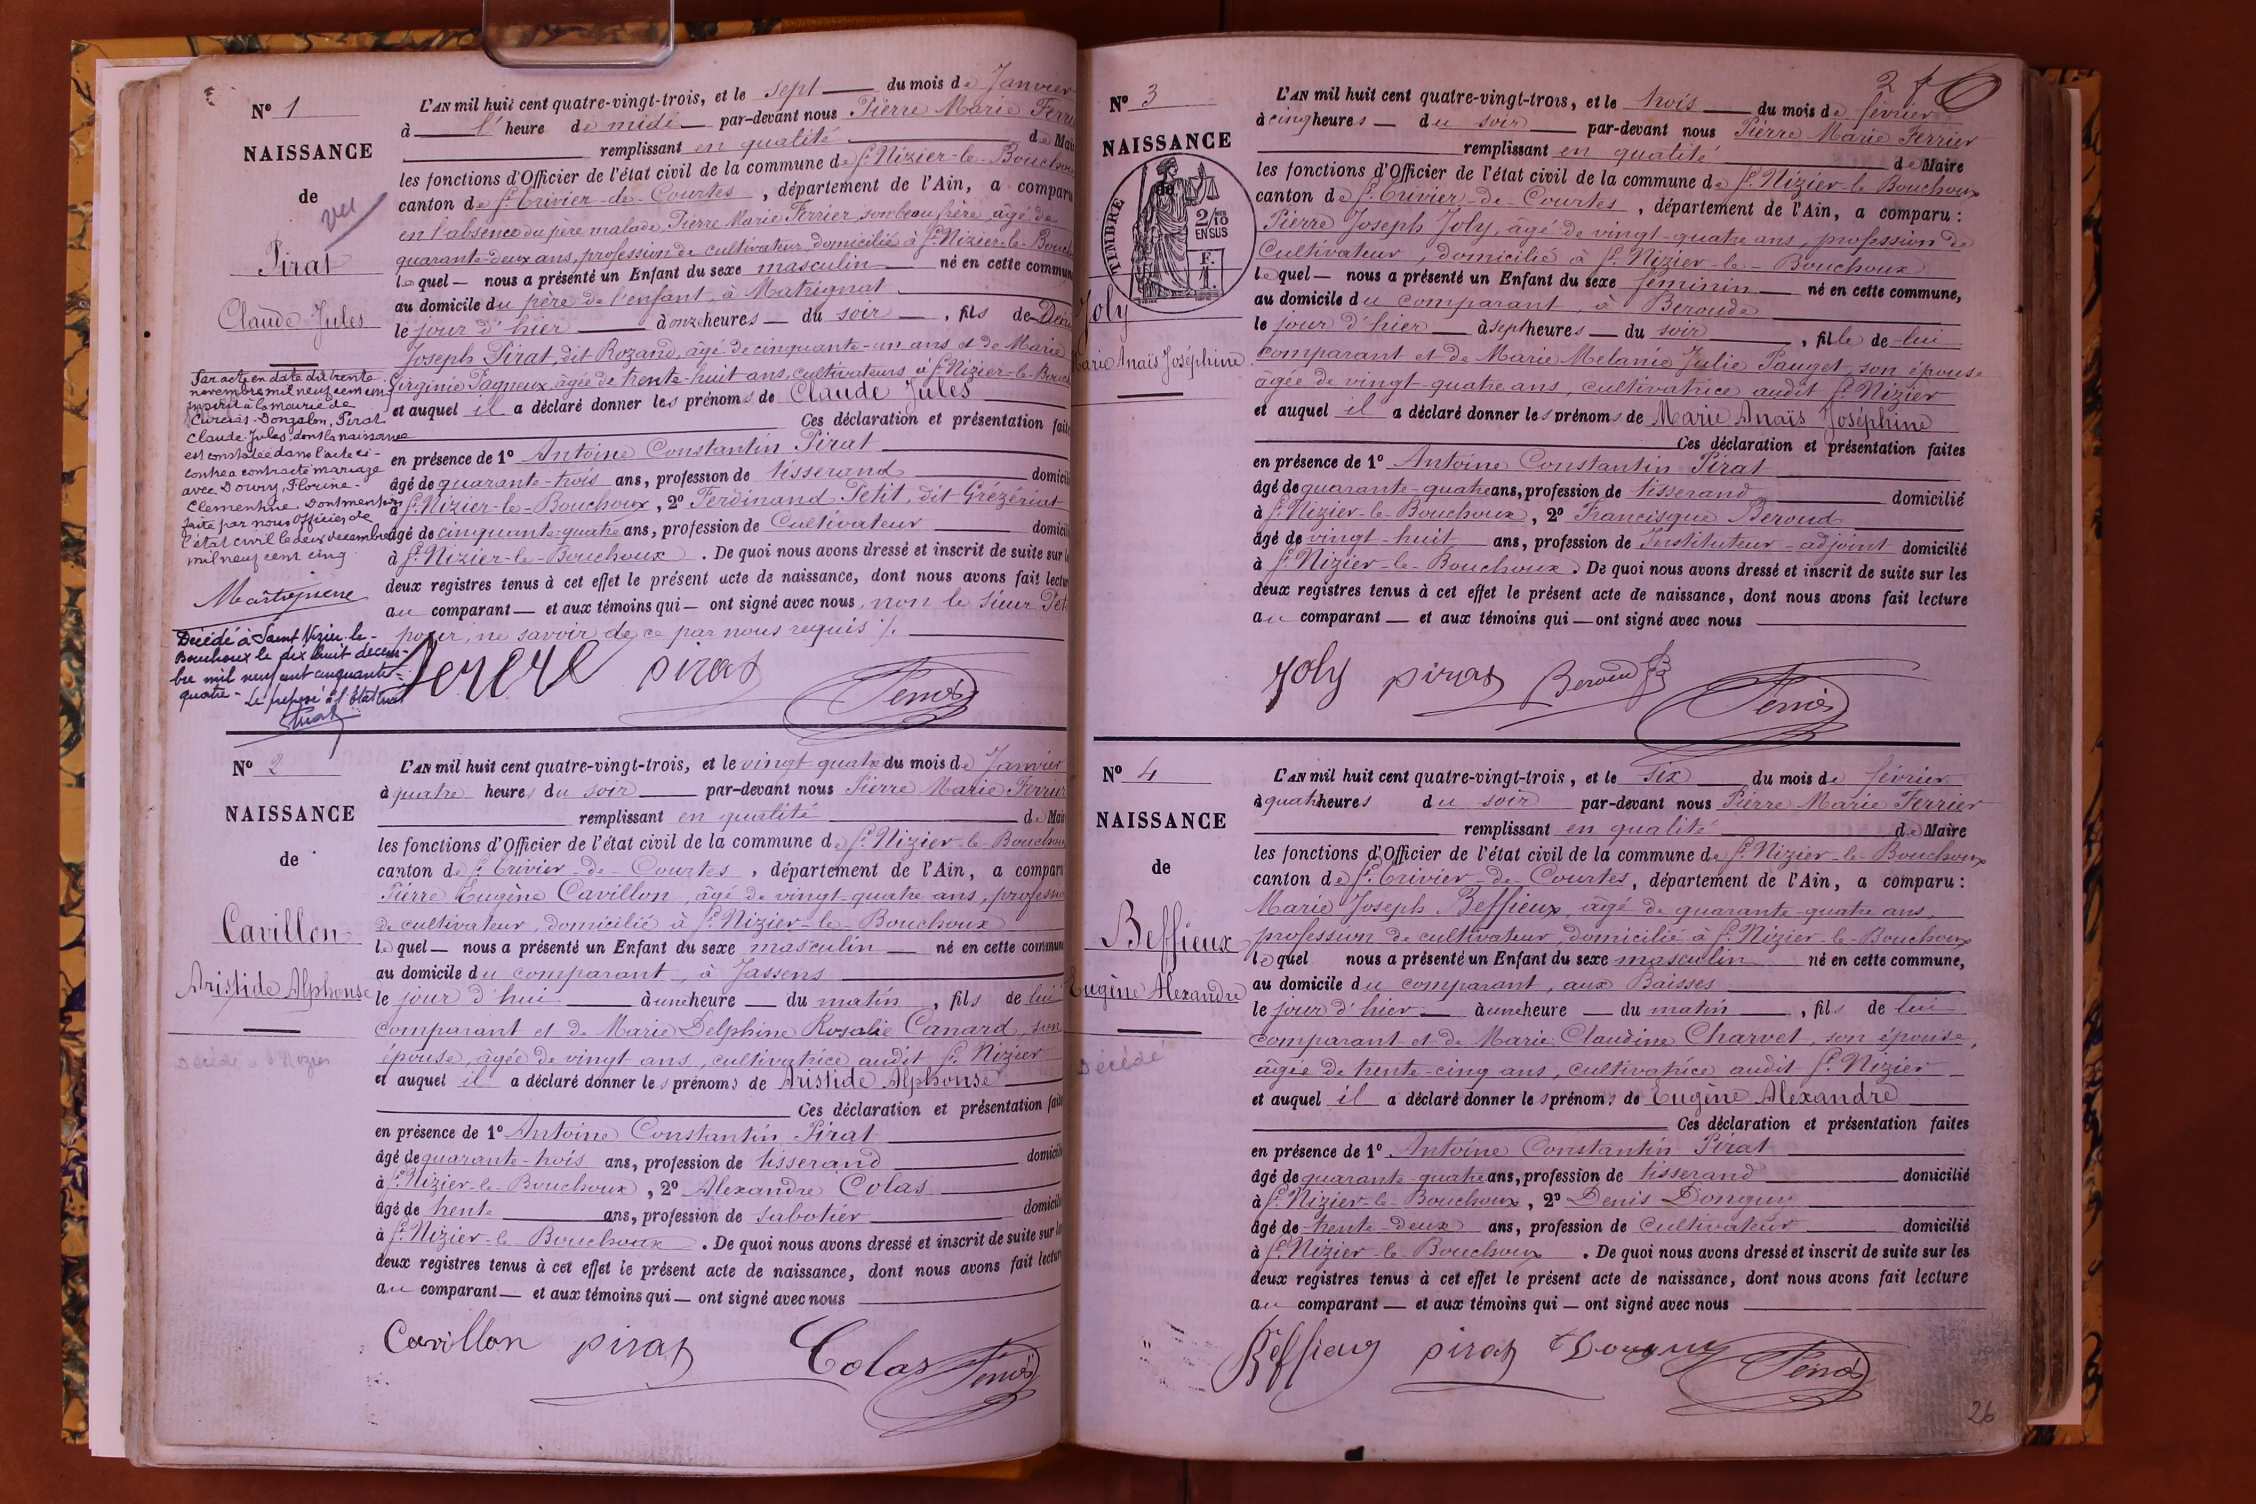 N° 1
NAISSANCE
de
vu
Pirat
Claude Jules
Par acte en date du trente
novembre mil neuf cent cinq
inscrit à la mairie de
Curciat-Dongalon, Pirat
Claude Jules dont la naissance
est constatée dans l'acte ci-
contre a contracté mariage
avec Douvry, Florine-
Clementine. Dont mention
faite par nous Officier de
l'état civil le deux decembre
mil neuf cent cinq
Décédé à Saint Nizier-le-
Bouchoux le dix huit decem-
bre mil neuf cent cinquante-
quatre - Le préposé à l'état civil
L'AN mil huit cent quatre-vingt-trois, et le sept du mois de Janvier
à l' heure de midi par-devant nous Pierre Marie Ferrier
remplissant en qualité de Maire
les fonctions d'Officier de l'état civil de la commune de St Nizier-le-Bouchoux
canton de St Trivier-de-Courtes, département de l'Ain, a comparu
en l'absence du père malade Pierre Marie Ferrier son beau frère âgé de
quarante-deux ans, profession de cultivateur domicilié à St Nizier-le-Bouch
lequel nous a présenté un Enfant du sexe masculin né en cette commune
au domicile du père de l'enfant, à Matrignat
le jour d'hier à onze heures du soir, fils de Denis
Joseph Pirat, dit Rozand, âgé de cinquante-un ans et de Marie
Virginie Pagneux, âgée de trente-huit ans, cultivateurs à St Nizier-le-Bouch
et auquel il a déclaré donner les prénoms de Claude Jules
Ces déclaration et présentation faite
en présence de 1° Antoine Constantin Pirat
âgé de quarante-trois ans, profession de tisserand domicilié
à St Nizier-le-Bouchoux, 2° Ferdinand Petit, dit Grézériat
âgé de cinquante-quatre ans, profession de Cultivateur domicilié
à St Nizier-le-Bouchoux. De quoi nous avons dressé et inscrit de suite sur le
deux registres tenus à cet effet le présent acte de naissance, dont nous avons fait lecture
au comparant et aux témoins qui ont signé avec nous, non le sieur Pet
pour ne savoir de ce par nous requis ./.
pirat
N° 2
NAISSANCE
de
Cavillon
Aristide Alphonse
Décédé à St Nizier
L'AN mil huit cent quatre-vingt-trois, et le vingt quatre du mois de Janvier
à quatre heures du soir par-devant nous Pierre Marie Ferrier
remplissant en qualité de Maire
les fonctions d'Officier de l'état civil de la commune de St Nizier-le-Bouchoux
canton de St Trivier-de-Courtes, département de l'Ain, a comparu
Pierre Eugène Cavillon, âgé de vingt-quatre ans, profession
de cultivateur, domicilié à St Nizier-le-Bouchoux
lequel nous a présenté un Enfant du sexe masculin né en cette commune
au domicile du comparant, à Jassens
le jour d'hui à une heure du matin, fils de lui
comparant et de Marie Delphine Rosalie Canard, son
épouse, âgée de vingt ans, cultivatrice audit St Nizier
et auquel il a déclaré donner les prénoms de Aristide Alphonse
Ces déclaration et présentation faite
en présence de 1° Antoine Constantin Pirat
âgé de quarante-trois ans, profession de tisserand domicilié
à St Nizier-le-Bouchoux, 2° Alexandre Colas
âgé de trente ans, profession de sabotier domicilié
à St Nizier-le Bouchoux. De quoi nous avons dressé et inscrit de suite sur les
deux registres tenus à cet effet le présent acte de naissance, dont nous avons fait lecture
au comparant et aux témoins qui ont signé avec nous
Cavillon pirat Colas
2
N° 3
NAISSANCE
de
TIMBRE
2/10
EN SUS
F.
1.
Joly
Marie Anaïs Joséphine
L'AN mil huit cent quatre-vingt-trois, et le trois du mois de février
à cinq heures du soir par-devant nous Pierre Marie Ferrier
remplissant en qualité de Maire
les fonctions d'Officier de l'état civil de la commune de St Nizier-le Bouchoux
canton de St Trivier-de-Courtes, département de l'Ain, a comparu :
Pierre Joseph Joly, âgé de vingt-quatre ans, profession de
Cultivateur, domicilié à St Nizier-le-Bouchoux
lequel nous a présenté un Enfant du sexe féminin né en cette commune,
au domicile du comparant, à Beroude
le jour d'hier à sept heures du soir, fille de lui
comparant et de Marie Melanie Julie Pauget, son épouse
âgée de vingt-quatre ans, cultivatrice audit St Nizier
et auquel il a déclaré donner les prénoms de Marie Anaïs Joséphine
Ces déclaration et présentation faites
en présence de 1° Antoine Constantin Pirat
âgé de quarante-quatre ans, profession de tisserand domicilié
à St Nizier-le-Bouchoux, 2° Francisque Beroud
âgé de vingt-huit ans, profession de Instituteur-adjoint domicilié
à St Nizier-le-Bouchoux. De quoi nous avons dressé et inscrit de suite sur les
deux registres tenus à cet effet le présent acte de naissance, dont nous avons fait lecture
au comparant et aux témoins qui ont signé avec nous
Joly pirat Beroud
N° 4
NAISSANCE
de
Beffieux
Eugène Alexandre
Décédé
L'AN mil huit cent quatre-vingt-trois, et le six du mois de février
à quatre heures du soir par-devant nous Pierre Marie Ferrier
remplissant en qualité de Maire
les fonctions d'Officier de l'état civil de la commune de St Nizier-le-Bouchoux
canton de St Trivier-de-Courtes, département de l'Ain, a comparu :
Marie Joseph Beffieux, âgé de quarante-quatre ans,
profession de cultivateur, domicilié à St Nizier-le-Bouchoux
lequel nous a présenté un Enfant du sexe masculin né en cette commune,
au domicile du comparant, aux Baisses
le jour d'hier à une heure du matin, fils de lui
comparant et de Marie Claudine Charvet, son épouse,
âgée de trente-cinq ans, cultivatrice audit St Nizier
et auquel il a déclaré donner les prénoms de Eugène Alexandre
Ces déclaration et présentation faites
en présence de 1° Antoine Constantin Pirat
âgé de quarante-quatre ans, profession de tisserand domicilié
à St Nizier-le-Bouchoux, 2° Denis Donguy
âgé de trente-deux ans, profession de Cultivateur domicilié
à St Nizier-le-Bouchoux. De quoi nous avons dressé et inscrit de suite sur les
deux registres tenus à cet effet le présent acte de naissance, dont nous avons fait lecture
au comparant et aux témoins qui ont signé avec nous
Beffieux pirat Donguy
26